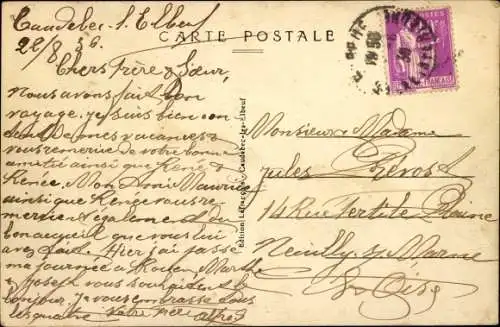 Caudebec-s. Elbeuf
22/8 36.
CARTE POSTALE
Chers frère & Sœur,
Nous avons fait bon
voyage. je suis bien con
tent de mes vacances
vous remercie de votre bonne
amitié ainsi que René &
Renée. Mon Ami Maurice
ainsi que Renée vous re
mercient également du
bon accueil que vous lui
avez fait. Hier j'ai passé
ma journée à Rouen, Marthe
& Joseph vous souhaitent le
bonjour. Je vous embrasse tous
les quatre Votre frère
Alfred
Edition Caudebec-lez-Elbeuf
POSTES
Monsieur & Madame
Jules Prévost
14 Rue Fertile Plaine
Neuilly s/ Marne
S. & Oise